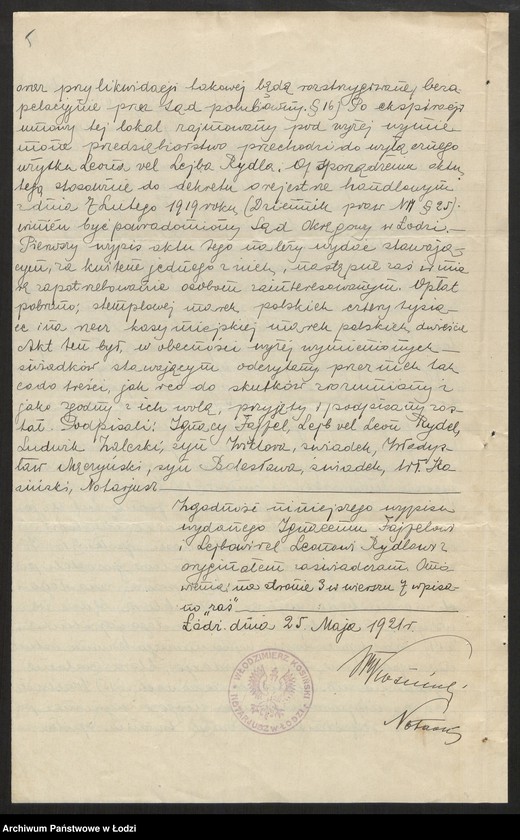 5
oraz przy likwidacji takowej będą rozstrzygane beza-
pelacyjnie przez Sąd polubowny. § 16) Po ekspiracji
umowy tej lokal zajmowany pod wyżej wymie
nione przedsiębiorstwo przechodzi do wyłącznego
użytku Leona vel Lejba Rydla. O sporządzeniu aktu
tego stosownie do dekretu o rejestrze handlowym
z dnia 7 Lutego 1919 roku (Dziennik praw № 14 § 25)
winien być powiadomiony Sąd Okręgowy w Łodzi.
Pierwszy wypis aktu tego należy wydać stawają-
cym, za kwitem jednego z nich, następne zaś w mia
rę zapotrzebowania osobom zainteresowanym. Opłat
pobrano: stemplowej marek polskich cztery tysią-
ce i na rzecz kasy miejskiej marek polskich dwieście
Akt ten był, w obecności wyżej wymienionych
świadków stawającym odczytany przez nich tak
co do treści, jak i co do skutków zrozumiany i
jako zgodny z ich wolą, przyjęty i podpisany zos-
tał. Podpisali: Ignacy Fajfel, Lejb vel Leon Rydel,
Ludwik Zaleski, syn Wiktora, świadek, Władys-
ław syn Bolesława, świadek, Wł. Ko
siński, Notarjusz
Zgodność niniejszego wypisu
wydanego Ignacemu Fajflowi
i Lejbowi vel Leonowi Rydlowi z
oryginałem zaświadczam. Omó
wienia: na stronie 3 w wierszu 7 wpisa-
no "zaś"
Łódź, dnia 25 Maja 1921 r.
Wł Kosiński
Notarjusz
WŁODZIMIERZ KOSIŃSKI
NOTARJUSZ W ŁODZI
Archiwum Państwowe w Łodzi